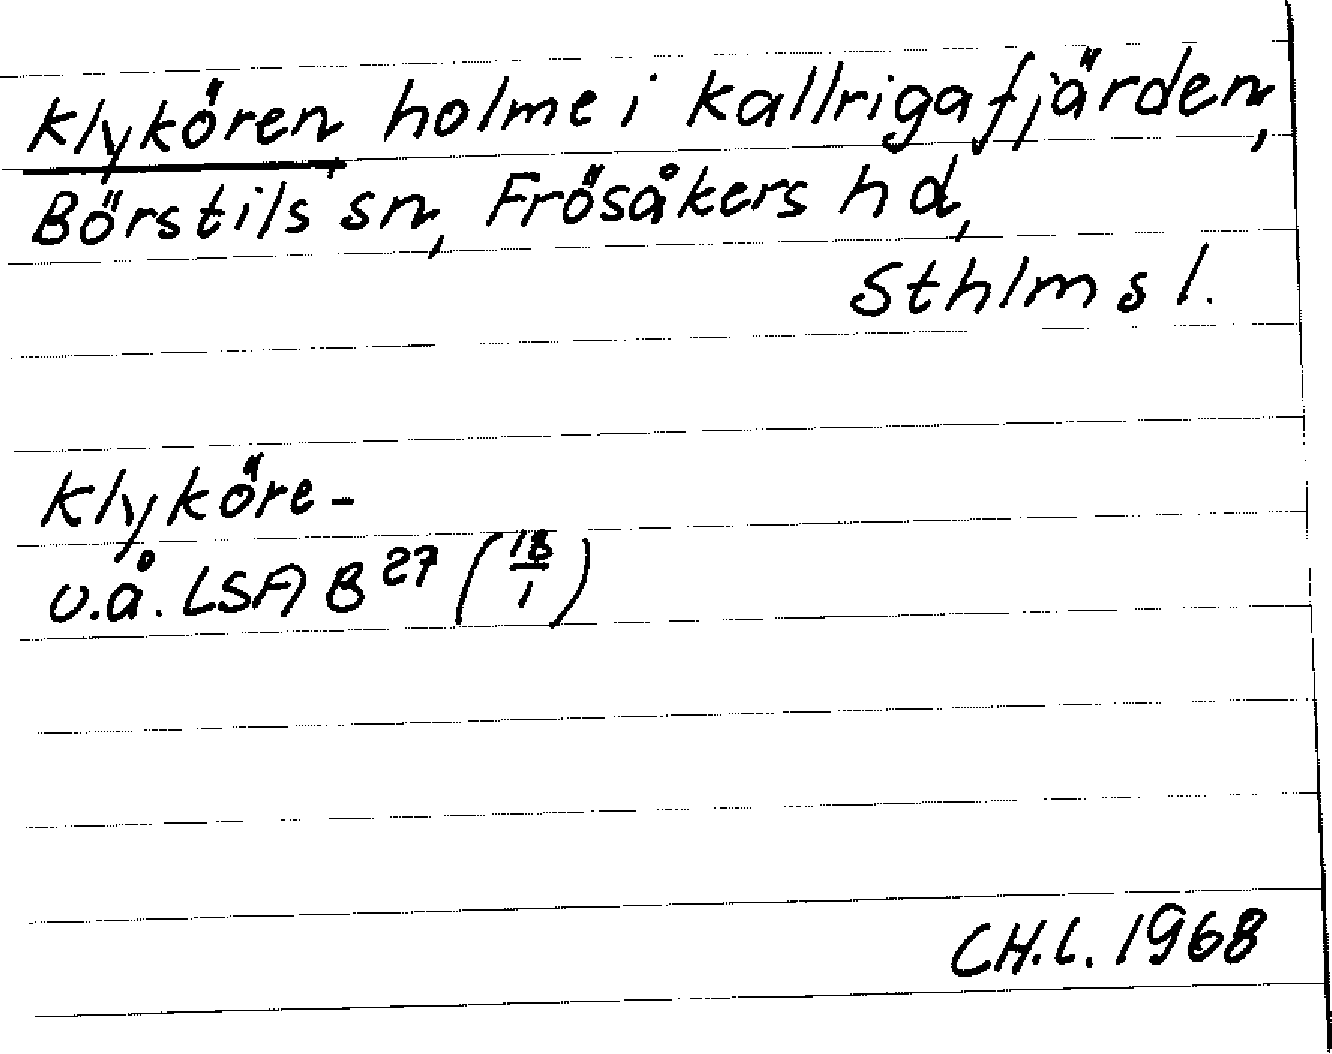 Klykören holme i Kallrigafjärden,
Börstils sn, Frösåkers hd,
Sthlms l.
Klyköre-
u.å. LSA B 27 (18/1)
CH.L. 1968